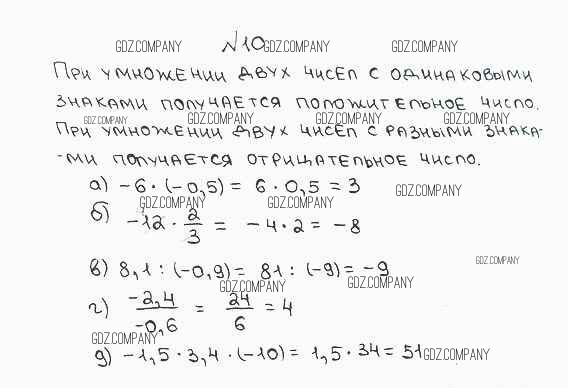 GDZ.COMPANY №10 GDZ.COMPANY GDZ.COMPANY
При умножении двух чисел с одинаковыми
знаками получается положительное число.
GDZ.COMPANY GDZ.COMPANY GDZ.COMPANY GDZ.COMPANY
При умножении двух чисел с разными знака-
-ми получается отрицательное число.
а) -6 · (-0,5) = 6 · 0,5 = 3 GDZ.COMPANY
GDZ.COMPANY GDZ.COMPANY
б) -12 · 2/3 = -4 · 2 = -8
GDZ.COMPANY
в) 8,1 : (-0,9) = 81 : (-9) = -9
GDZ.COMPANY GDZ.COMPANY
г) -2,4/-0,6 = 24/6 = 4
GDZ.COMPANY
д) -1,5 · 3,4 · (-10) = 1,5 · 34 = 51 GDZ.COMPANY